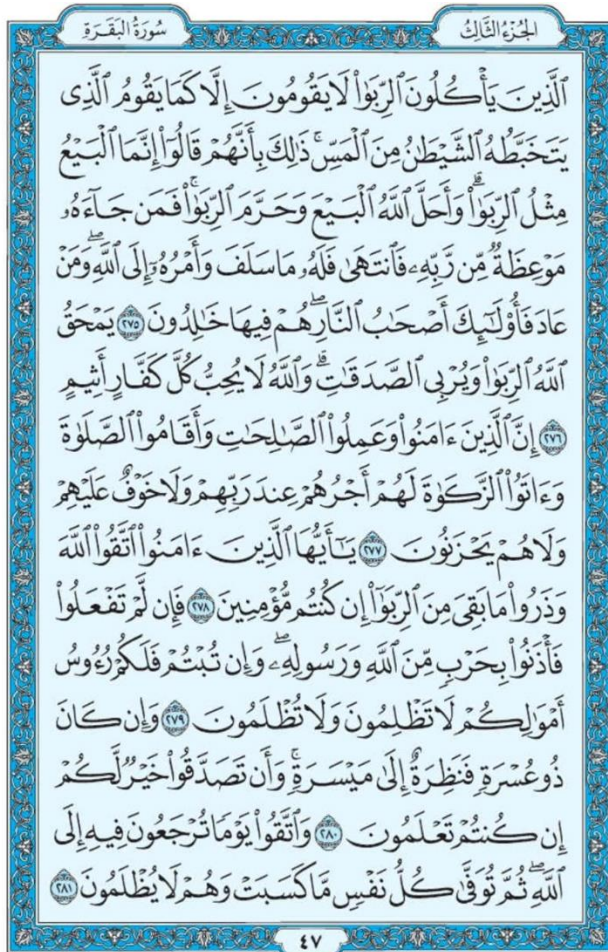 الجُزْءُ الثَّالِثُ
سُورَةُ البَقَرَةِ
ٱلَّذِينَ يَأۡكُلُونَ ٱلرِّبَوٰاْ لَا يَقُومُونَ إِلَّا كَمَا يَقُومُ ٱلَّذِى
يَتَخَبَّطُهُ ٱلشَّيۡطَٰنُ مِنَ ٱلۡمَسِّۚ ذَٰلِكَ بِأَنَّهُمۡ قَالُوٓاْ إِنَّمَا ٱلۡبَيۡعُ
مِثۡلُ ٱلرِّبَوٰاْۗ وَأَحَلَّ ٱللَّهُ ٱلۡبَيۡعَ وَحَرَّمَ ٱلرِّبَوٰاْۚ فَمَن جَآءَهُۥ
مَوۡعِظَةٞ مِّن رَّبِّهِۦ فَٱنتَهَىٰ فَلَهُۥ مَا سَلَفَ وَأَمۡرُهُۥٓ إِلَى ٱللَّهِۖ وَمَنۡ
عَادَ فَأُوْلَٰٓئِكَ أَصۡحَٰبُ ٱلنَّارِۖ هُمۡ فِيهَا خَٰلِدُونَ ٢٧٥ يَمۡحَقُ
ٱللَّهُ ٱلرِّبَوٰاْ وَيُرۡبِى ٱلصَّدَقَٰتِۗ وَٱللَّهُ لَا يُحِبُّ كُلَّ كَفَّارٍ أَثِيمٍ
٢٧٦ إِنَّ ٱلَّذِينَ ءَامَنُواْ وَعَمِلُواْ ٱلصَّٰلِحَٰتِ وَأَقَامُواْ ٱلصَّلَوٰةَ
وَءَاتَوُاْ ٱلزَّكَوٰةَ لَهُمۡ أَجۡرُهُمۡ عِندَ رَبِّهِمۡ وَلَا خَوۡفٌ عَلَيۡهِمۡ
وَلَا هُمۡ يَحۡزَنُونَ ٢٧٧ يَٰٓأَيُّهَا ٱلَّذِينَ ءَامَنُواْ ٱتَّقُواْ ٱللَّهَ
وَذَرُواْ مَا بَقِىَ مِنَ ٱلرِّبَوٰٓاْ إِن كُنتُم مُّؤۡمِنِينَ ٢٧٨ فَإِن لَّمۡ تَفۡعَلُواْ
فَأۡذَنُواْ بِحَرۡبٖ مِّنَ ٱللَّهِ وَرَسُولِهِۦۖ وَإِن تُبۡتُمۡ فَلَكُمۡ رُءُوسُ
أَمۡوَٰلِكُمۡ لَا تَظۡلِمُونَ وَلَا تُظۡلَمُونَ ٢٧٩ وَإِن كَانَ
ذُو عُسۡرَةٖ فَنَظِرَةٌ إِلَىٰ مَيۡسَرَةٖۚ وَأَن تَصَدَّقُواْ خَيۡرٞ لَّكُمۡ
إِن كُنتُمۡ تَعۡلَمُونَ ٢٨٠ وَٱتَّقُواْ يَوۡمٗا تُرۡجَعُونَ فِيهِ إِلَى
ٱللَّهِۖ ثُمَّ تُوَفَّىٰ كُلُّ نَفۡسٖ مَّا كَسَبَتۡ وَهُمۡ لَا يُظۡلَمُونَ ٢٨١
٤٧